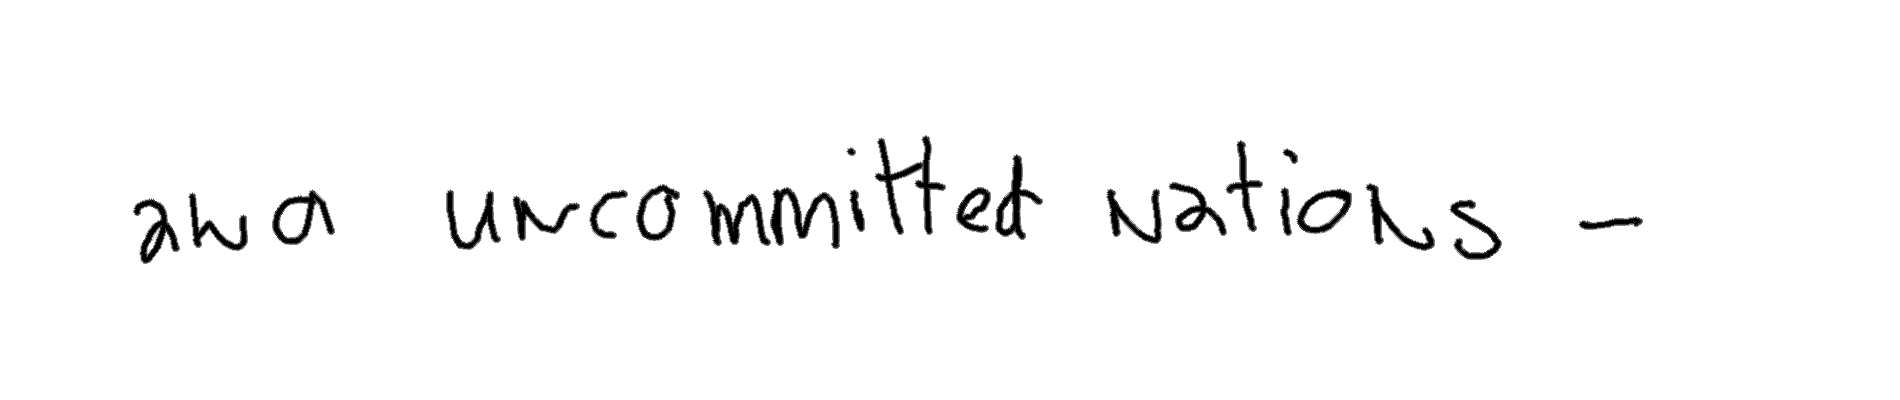 and uncommitted nations -